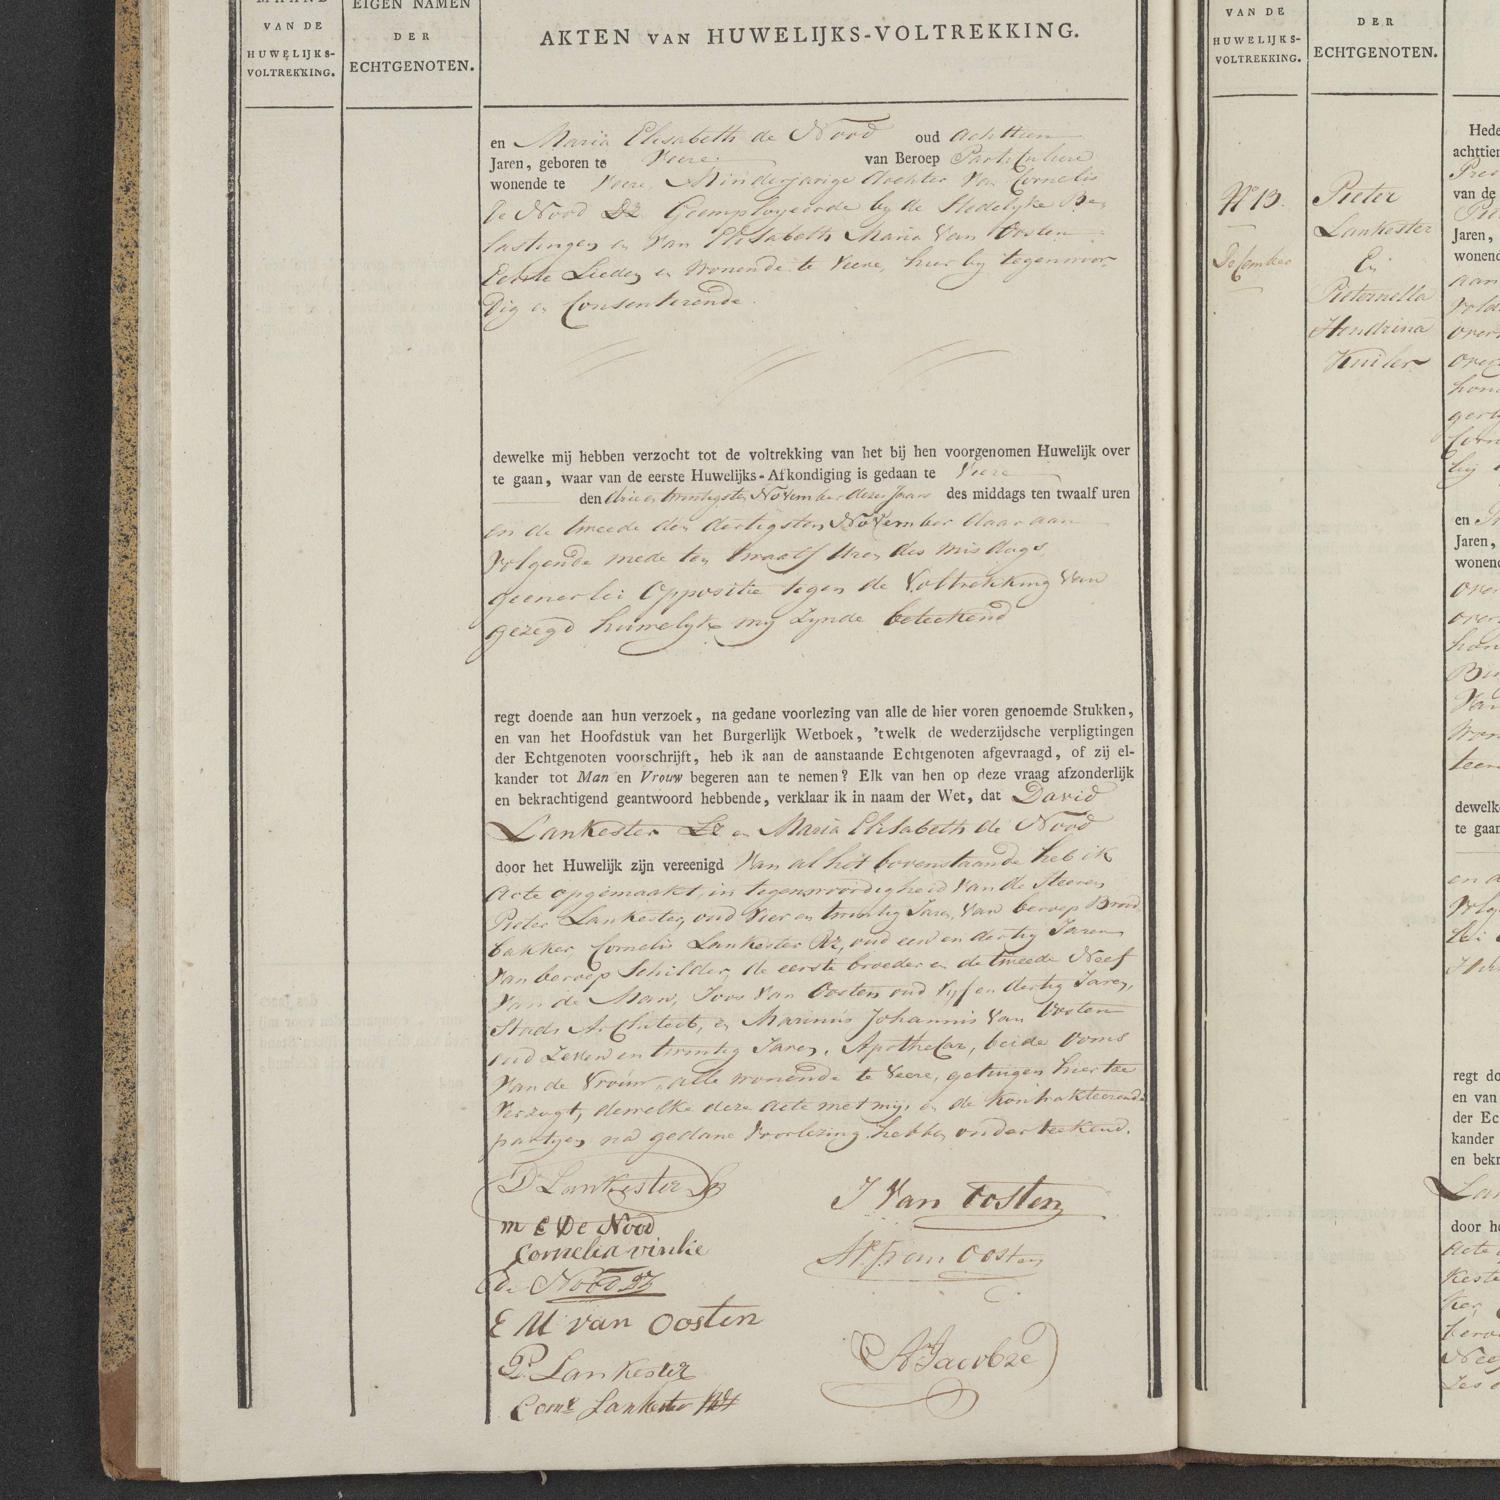 MAAND
VAN DE
HUWELIJKS-
VOLTREKKING.
EIGEN NAMEN
DER
ECHTGENOTEN.
AKTEN VAN HUWELIJKS-VOLTREKKING.
en Maria Elisabeth de Nood oud achttien
Jaren, geboren te Veere van Beroep Particuliere
wonende te Veere, Minderjarige dochter van Cornelis
de Nood Dz. Geemployeerde by de Stedelyke Be-
lastingen en van Elisabeth Maria van Oosten
Echte Lieden en wonende te Veere, hier by tegenwoor-
dig en Consenterende.
dewelke mij hebben verzocht tot de voltrekking van het bij hen voorgenomen Huwelijk over
te gaan, waar van de eerste Huwelijks-Afkondiging is gedaan te Veere
den drie en twintigsten November dezes Jaars des middags ten twaalf uren
en de tweede den dertigsten November daar aan
volgende mede ten twaalf uren des middags,
geenerlei Oppositie tegen de Voltrekking van
gezegd huwelyk my zynde beteekend
regt doende aan hun verzoek, na gedane voorlezing van alle de hier voren genoemde Stukken,
en van het Hoofdstuk van het Burgerlijk Wetboek, 'twelk de wederzijdsche verpligtingen
der Echtgenoten voorschrijft, heb ik aan de aanstaande Echtgenoten afgevraagd, of zij el-
kander tot Man en Vrouw begeren aan te nemen? Elk van hen op deze vraag afzonderlijk
en bekrachtigend geantwoord hebbende, verklaar ik in naam der Wet, dat David
Lankester en Maria Elisabeth de Nood
door het Huwelijk zijn vereenigd Van al het bovenstaande heb ik
acte opgemaakt, in tegenwoordigheid van de Heeren
Pieter Lankester, oud vier en twintig Jaren, van beroep Brood
bakker, Cornelis Lankester Rz, oud een en dertig Jaren
van beroep Schilder, de eerste broeder en de tweede Neef
van de Man, Joos van Oosten oud vyf en dertig Jaren,
Stads Architect, en Marinus Johannis van Oosten
oud zeven en twintig Jaren, Apothecar, beide Ooms
van de Vrouw, alle wonende te Veere, getuigen hier toe
verzogt, dewelke deze acte met my, en de kontrakteerende
partyen na gedane voorlezing hebben onderteekend.
D Lankester
m E De Nood
Cornelia vinke
C de Nood Dz
E M van Oosten
P. Lankester
Corns Lankester
J Van Oosten
M J van Oosten
A Jacobze
VAN DE
HUWELIJKS-
VOLTREKKING.
DER
ECHTGENOTEN.
No 13.
December
Pieter
Lankester
En
Pieternella
Hendrina
Kuiler
Hede
achttien
van de
Jaren,
wonend
en
Jaren,
wonend
dewelk
te gaan
regt do
en van
der Ec
kander
en bekr
Lan
door he